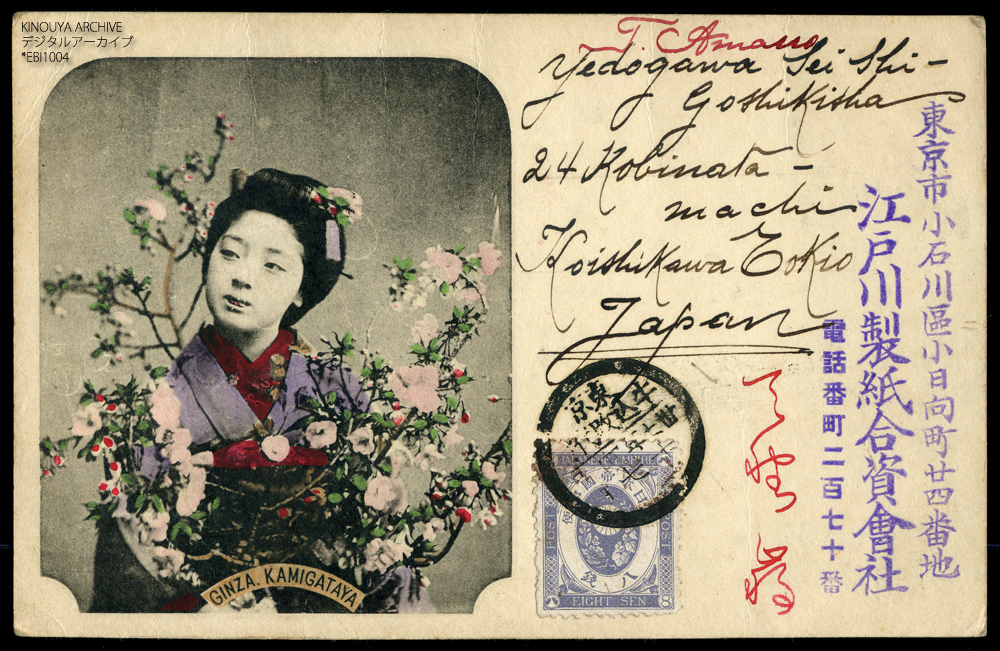 KINOUYA ARCHIVE
デジタルアーカイブ
*EBI1004
T. Amano
Yedogawa Sei Shi-
Goshikisha
24 Kobinata-
machi
Koishikawa Tokio
Japan
東京市小石川區小日向町廿四番地
江戸川製紙合資會社
電話番町二百七十番
東京
JAPANESE EMPIRE
POST
POST
八銭
8 EIGHT SEN 8
GINZA. KAMIGATAYA